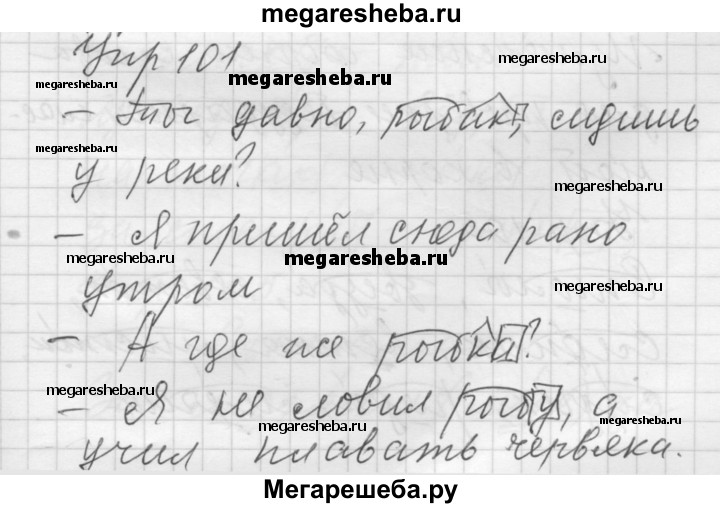 megaresheba.ru
Упр 101
megaresheba.ru megaresheba.ru
– Ты давно, рыбак, сидишь
megaresheba.ru
у реки?
megaresheba.ru
– Я пришёл сюда рано
megaresheba.ru megaresheba.ru megaresheba.ru
утром
– А где же рыбка?
megaresheba.ru megaresheba.ru
– Я не ловил рыбу, а
megaresheba.ru megaresheba.ru
учил плавать червяка.
Мегарешеба.ру